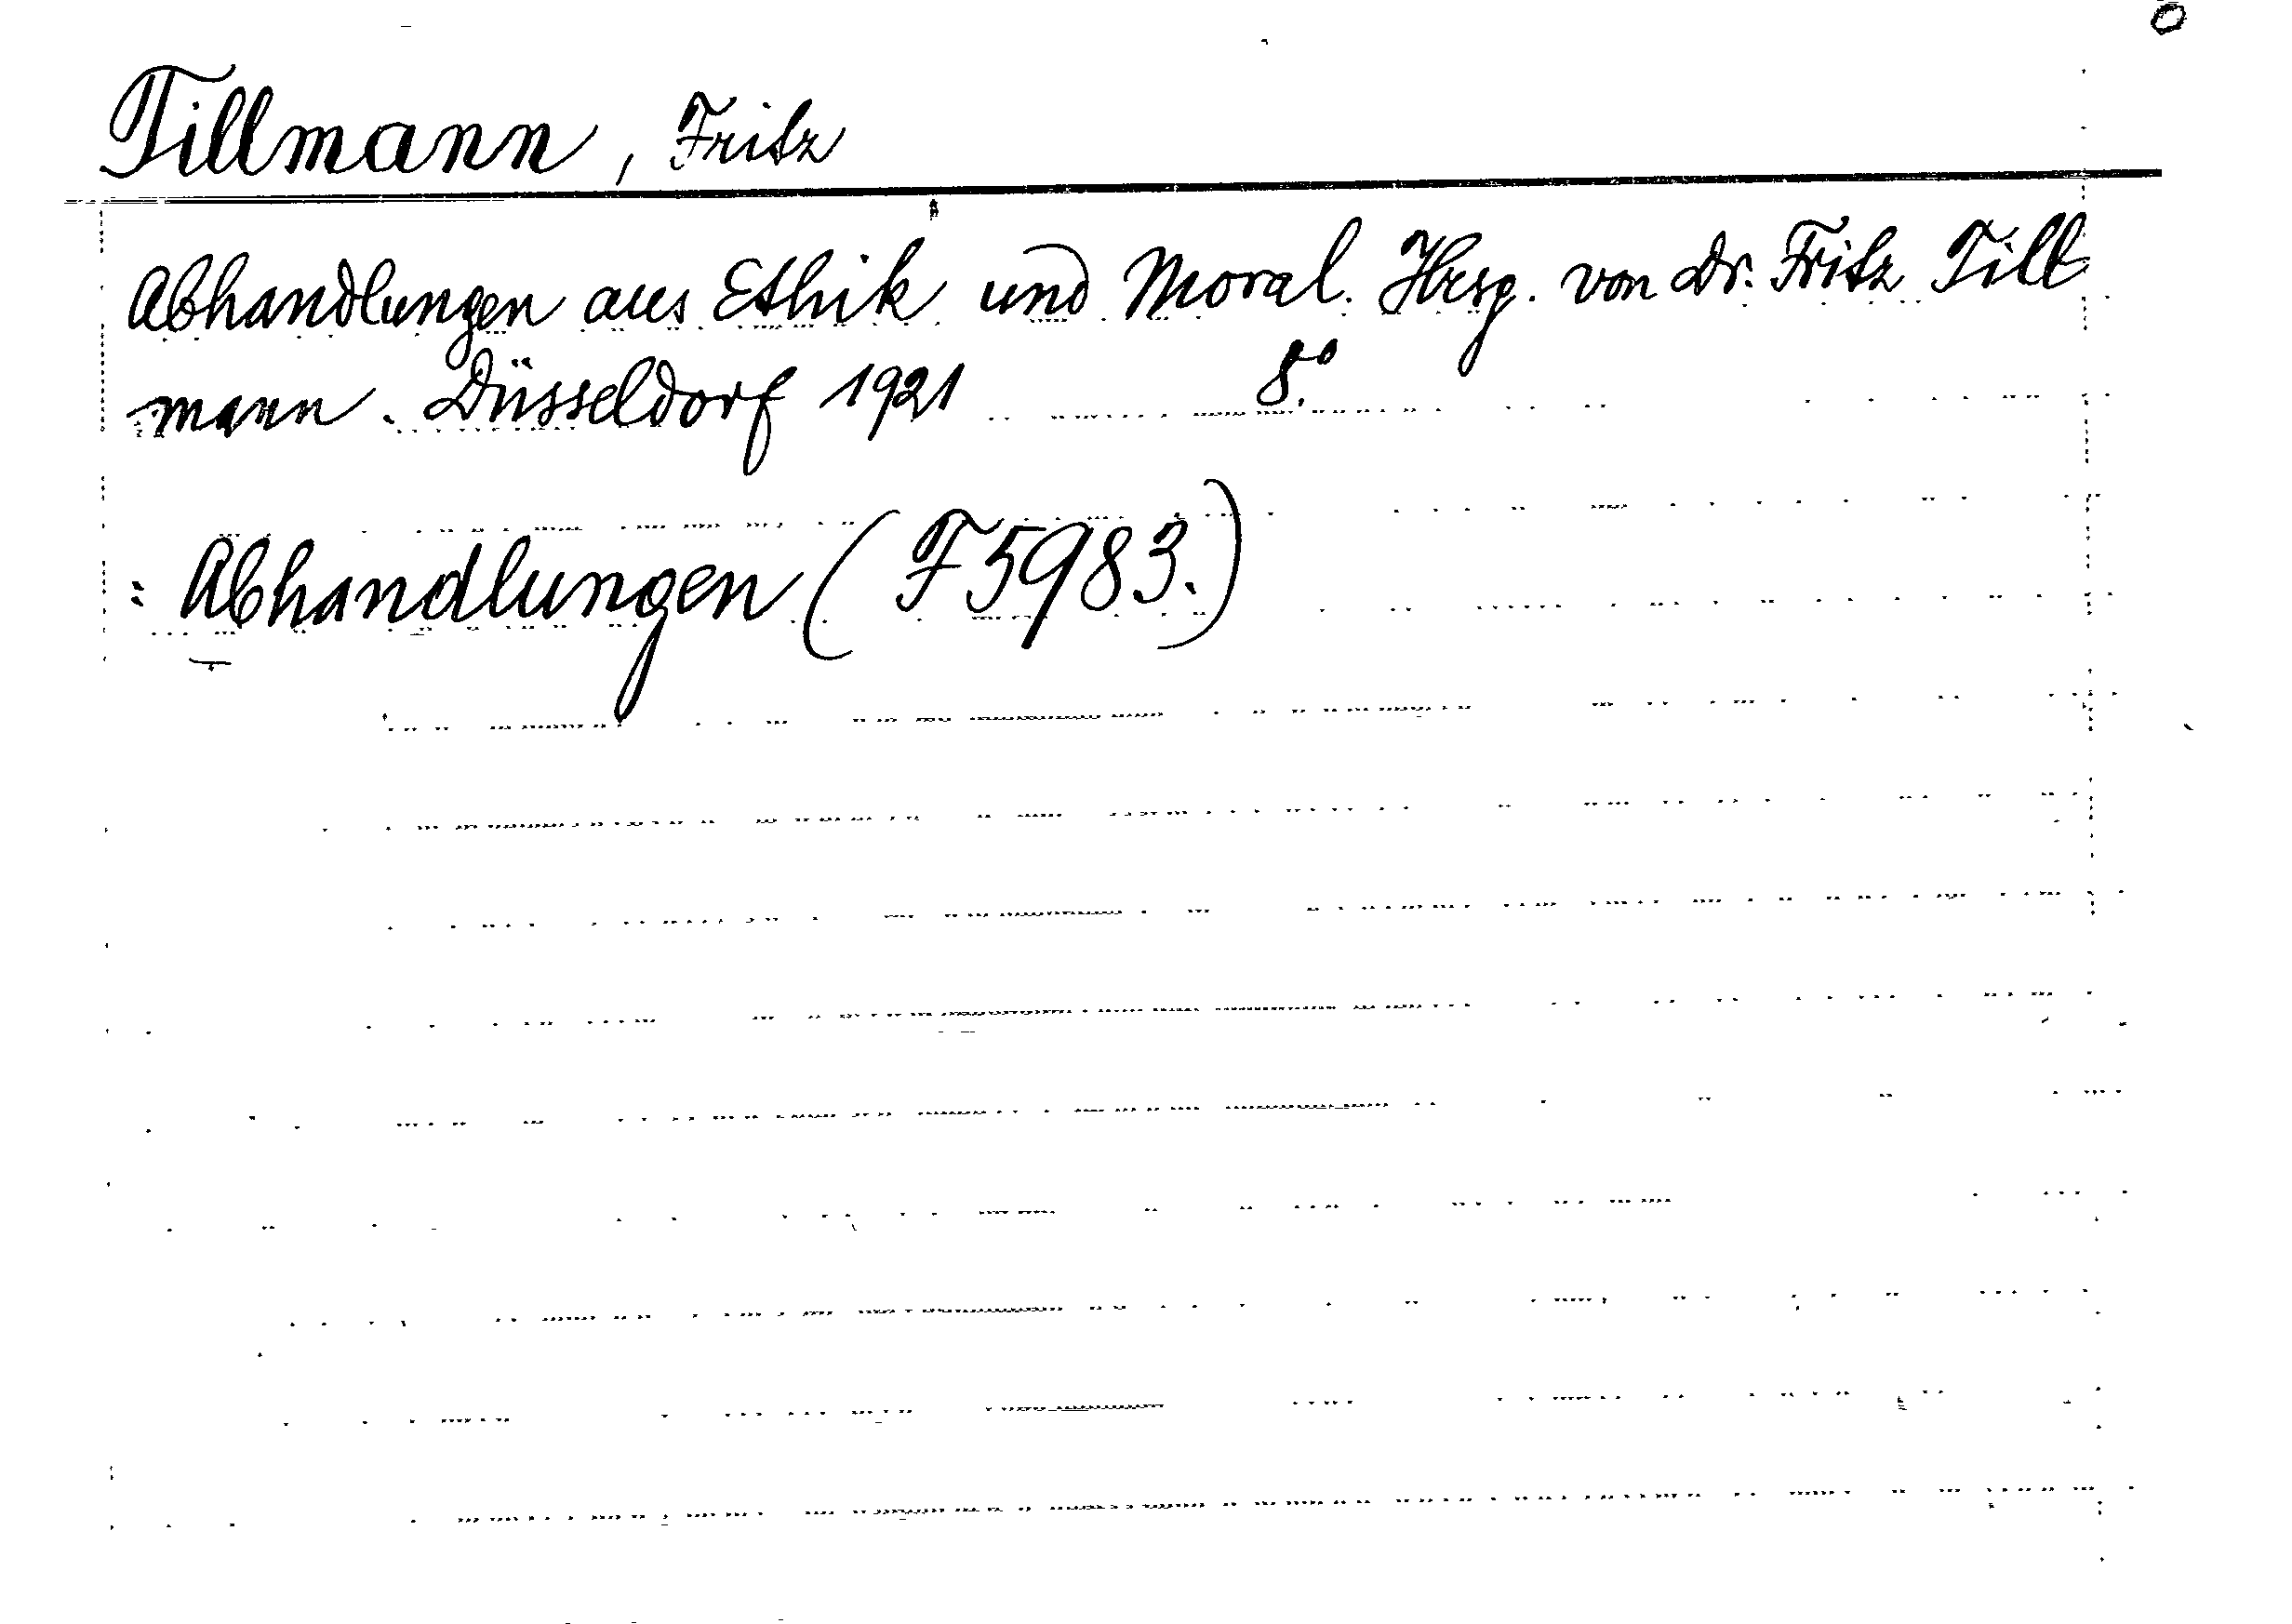 Tillmann, Fritz
Abhandlungen aus Ethik und Moral. Hrsg. von Dr. Fritz Till
mann. Düsseldorf 1921 8.°
: Abhandlungen (F 5983.)